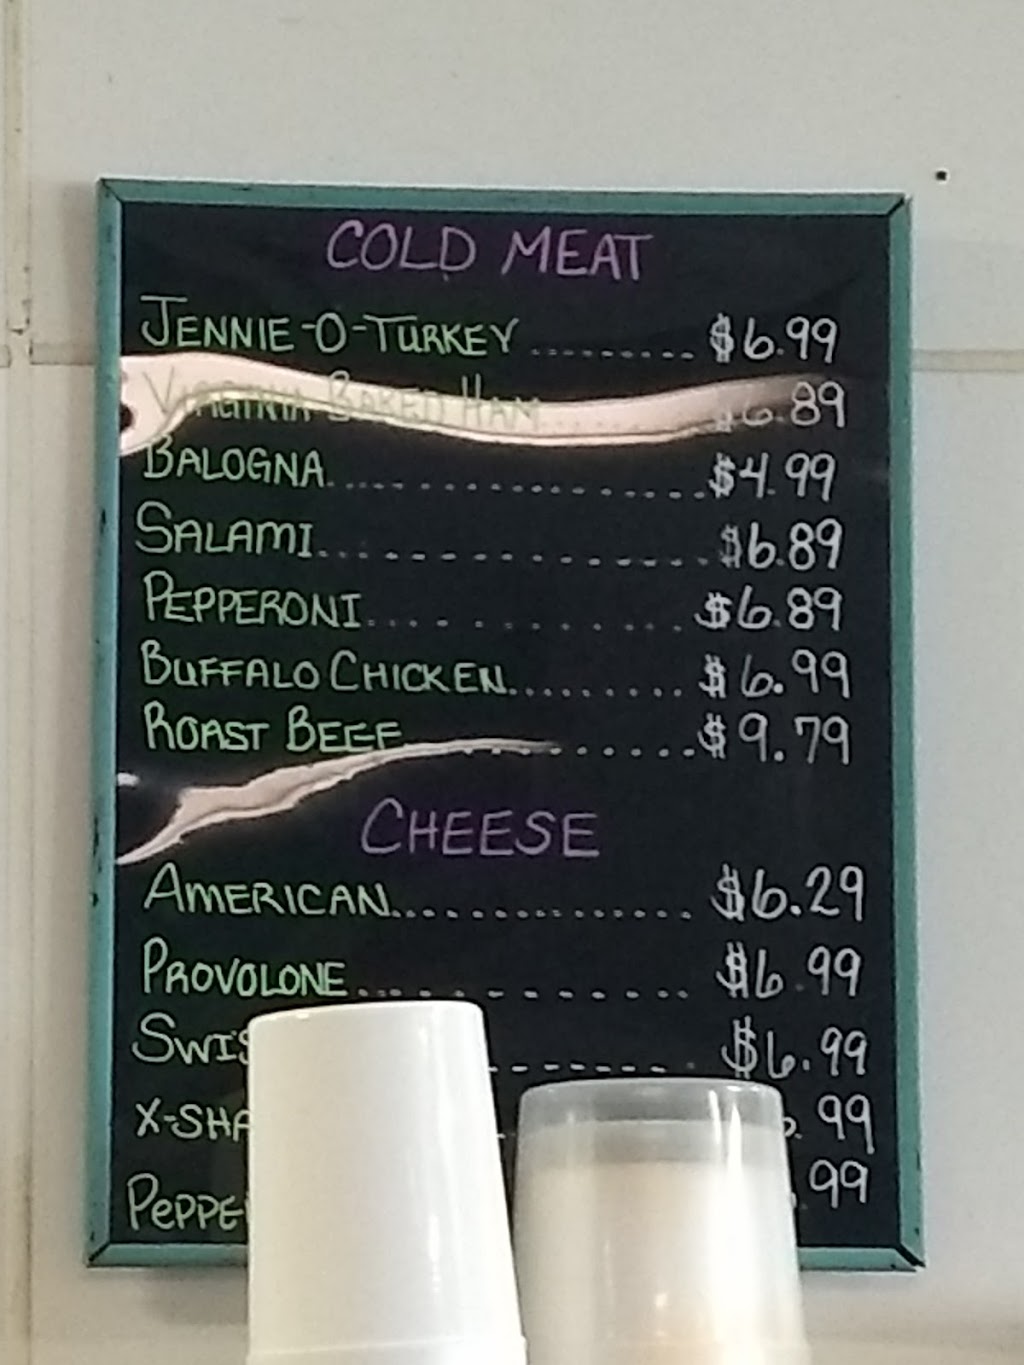 COLD MEAT
JENNIE-O-TURKEY ......... $6.99
VIRGINIA BAKED HAM ...... $6.89
BALOGNA ................. $4.99
SALAMI .................. $6.89
PEPPERONI ............... $6.89
BUFFALO CHICKEN ......... $6.99
ROAST BEEF .............. $9.79
CHEESE
AMERICAN ................ $6.29
PROVOLONE ............... $6.99
SWIS ........ $6.99
X-SHA .99
PEPPE .99